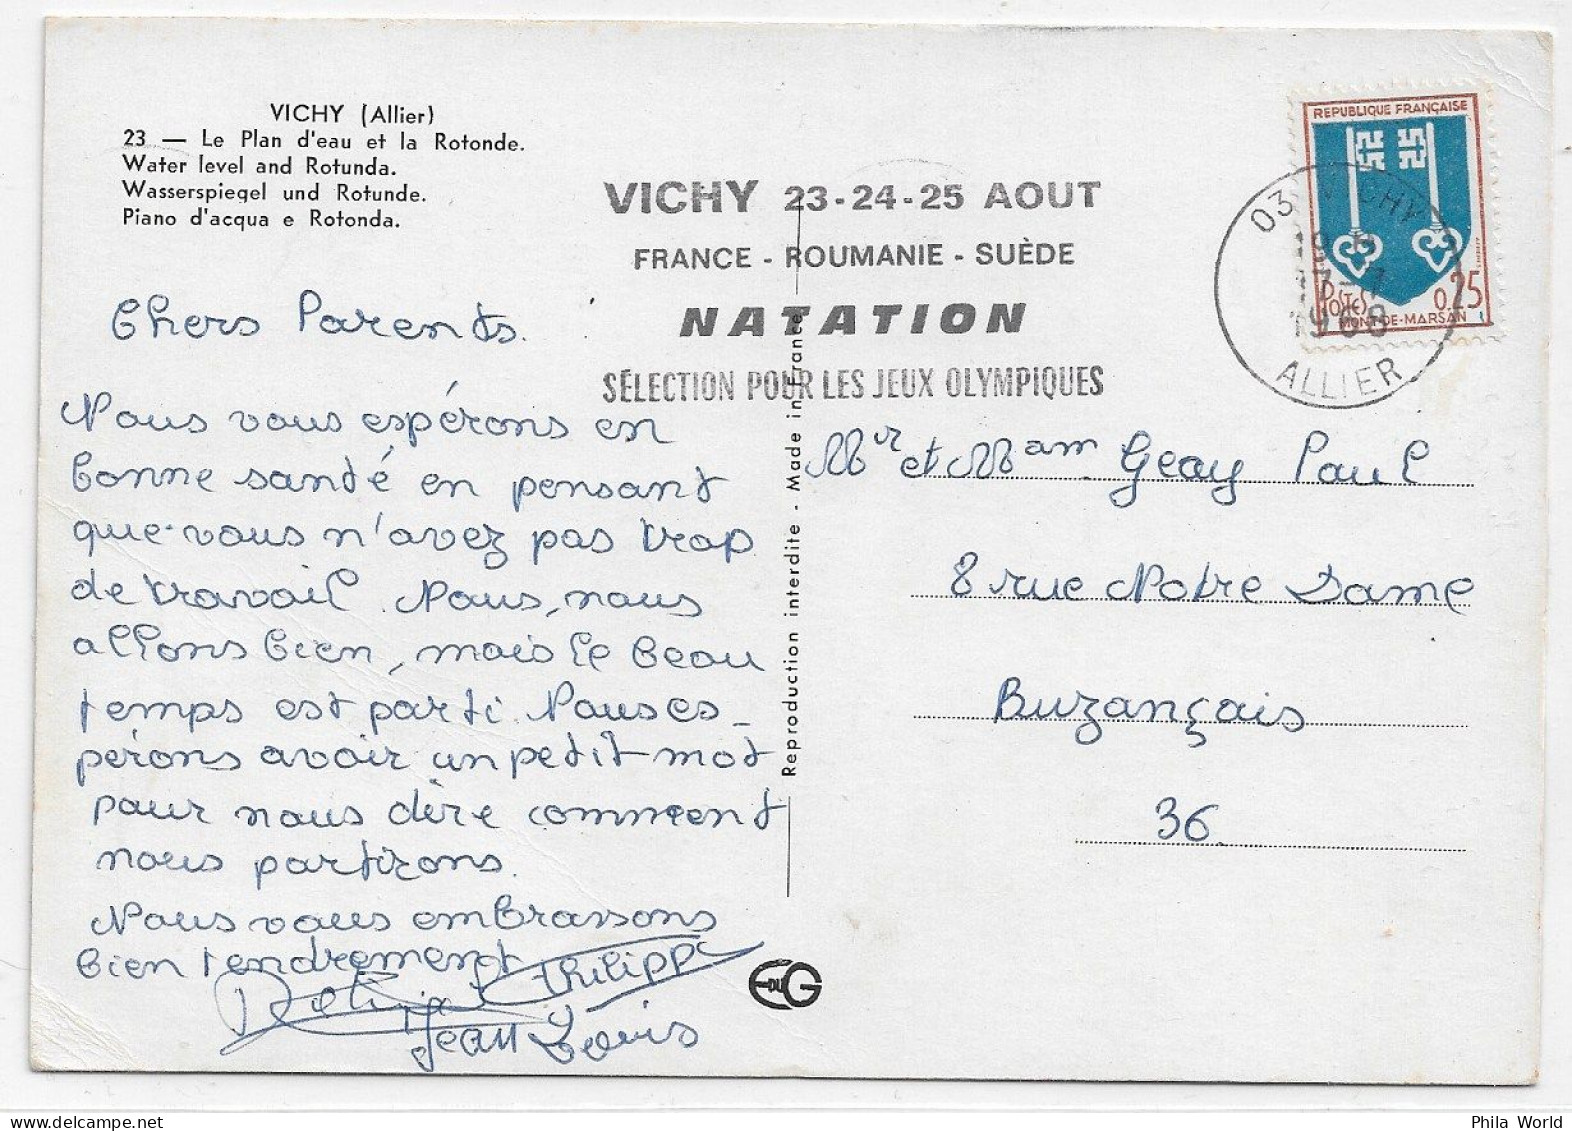 VICHY (Allier)
23 — Le Plan d'eau et la Rotonde.
Water level and Rotunda.
Wasserspiegel und Rotunde.
Piano d'acqua e Rotonda.
VICHY 23-24-25 AOUT
FRANCE - ROUMANIE - SUÈDE
NATATION
SÉLECTION POUR LES JEUX OLYMPIQUES
REPUBLIQUE FRANÇAISE
POSTES
0.25
MONT-DE-MARSAN
03 VICHY
1968
ALLIER
Chers Parents.
Nous vous espérons en
bonne santé en pensant
que vous n'avez pas trop
de travail. Nous, nous
allons bien, mais le beau
temps est parti. Nous es-
pérons avoir un petit mot
pour nous dire comment
nous partirons.
Nous vous embrassons
bien tendrement
Philippe
Jean Louis
Reproduction interdite - Made in France
Mr et Mam Geay Paul
8 rue Notre Dame
Buzançais
36
E DU G
Phila World